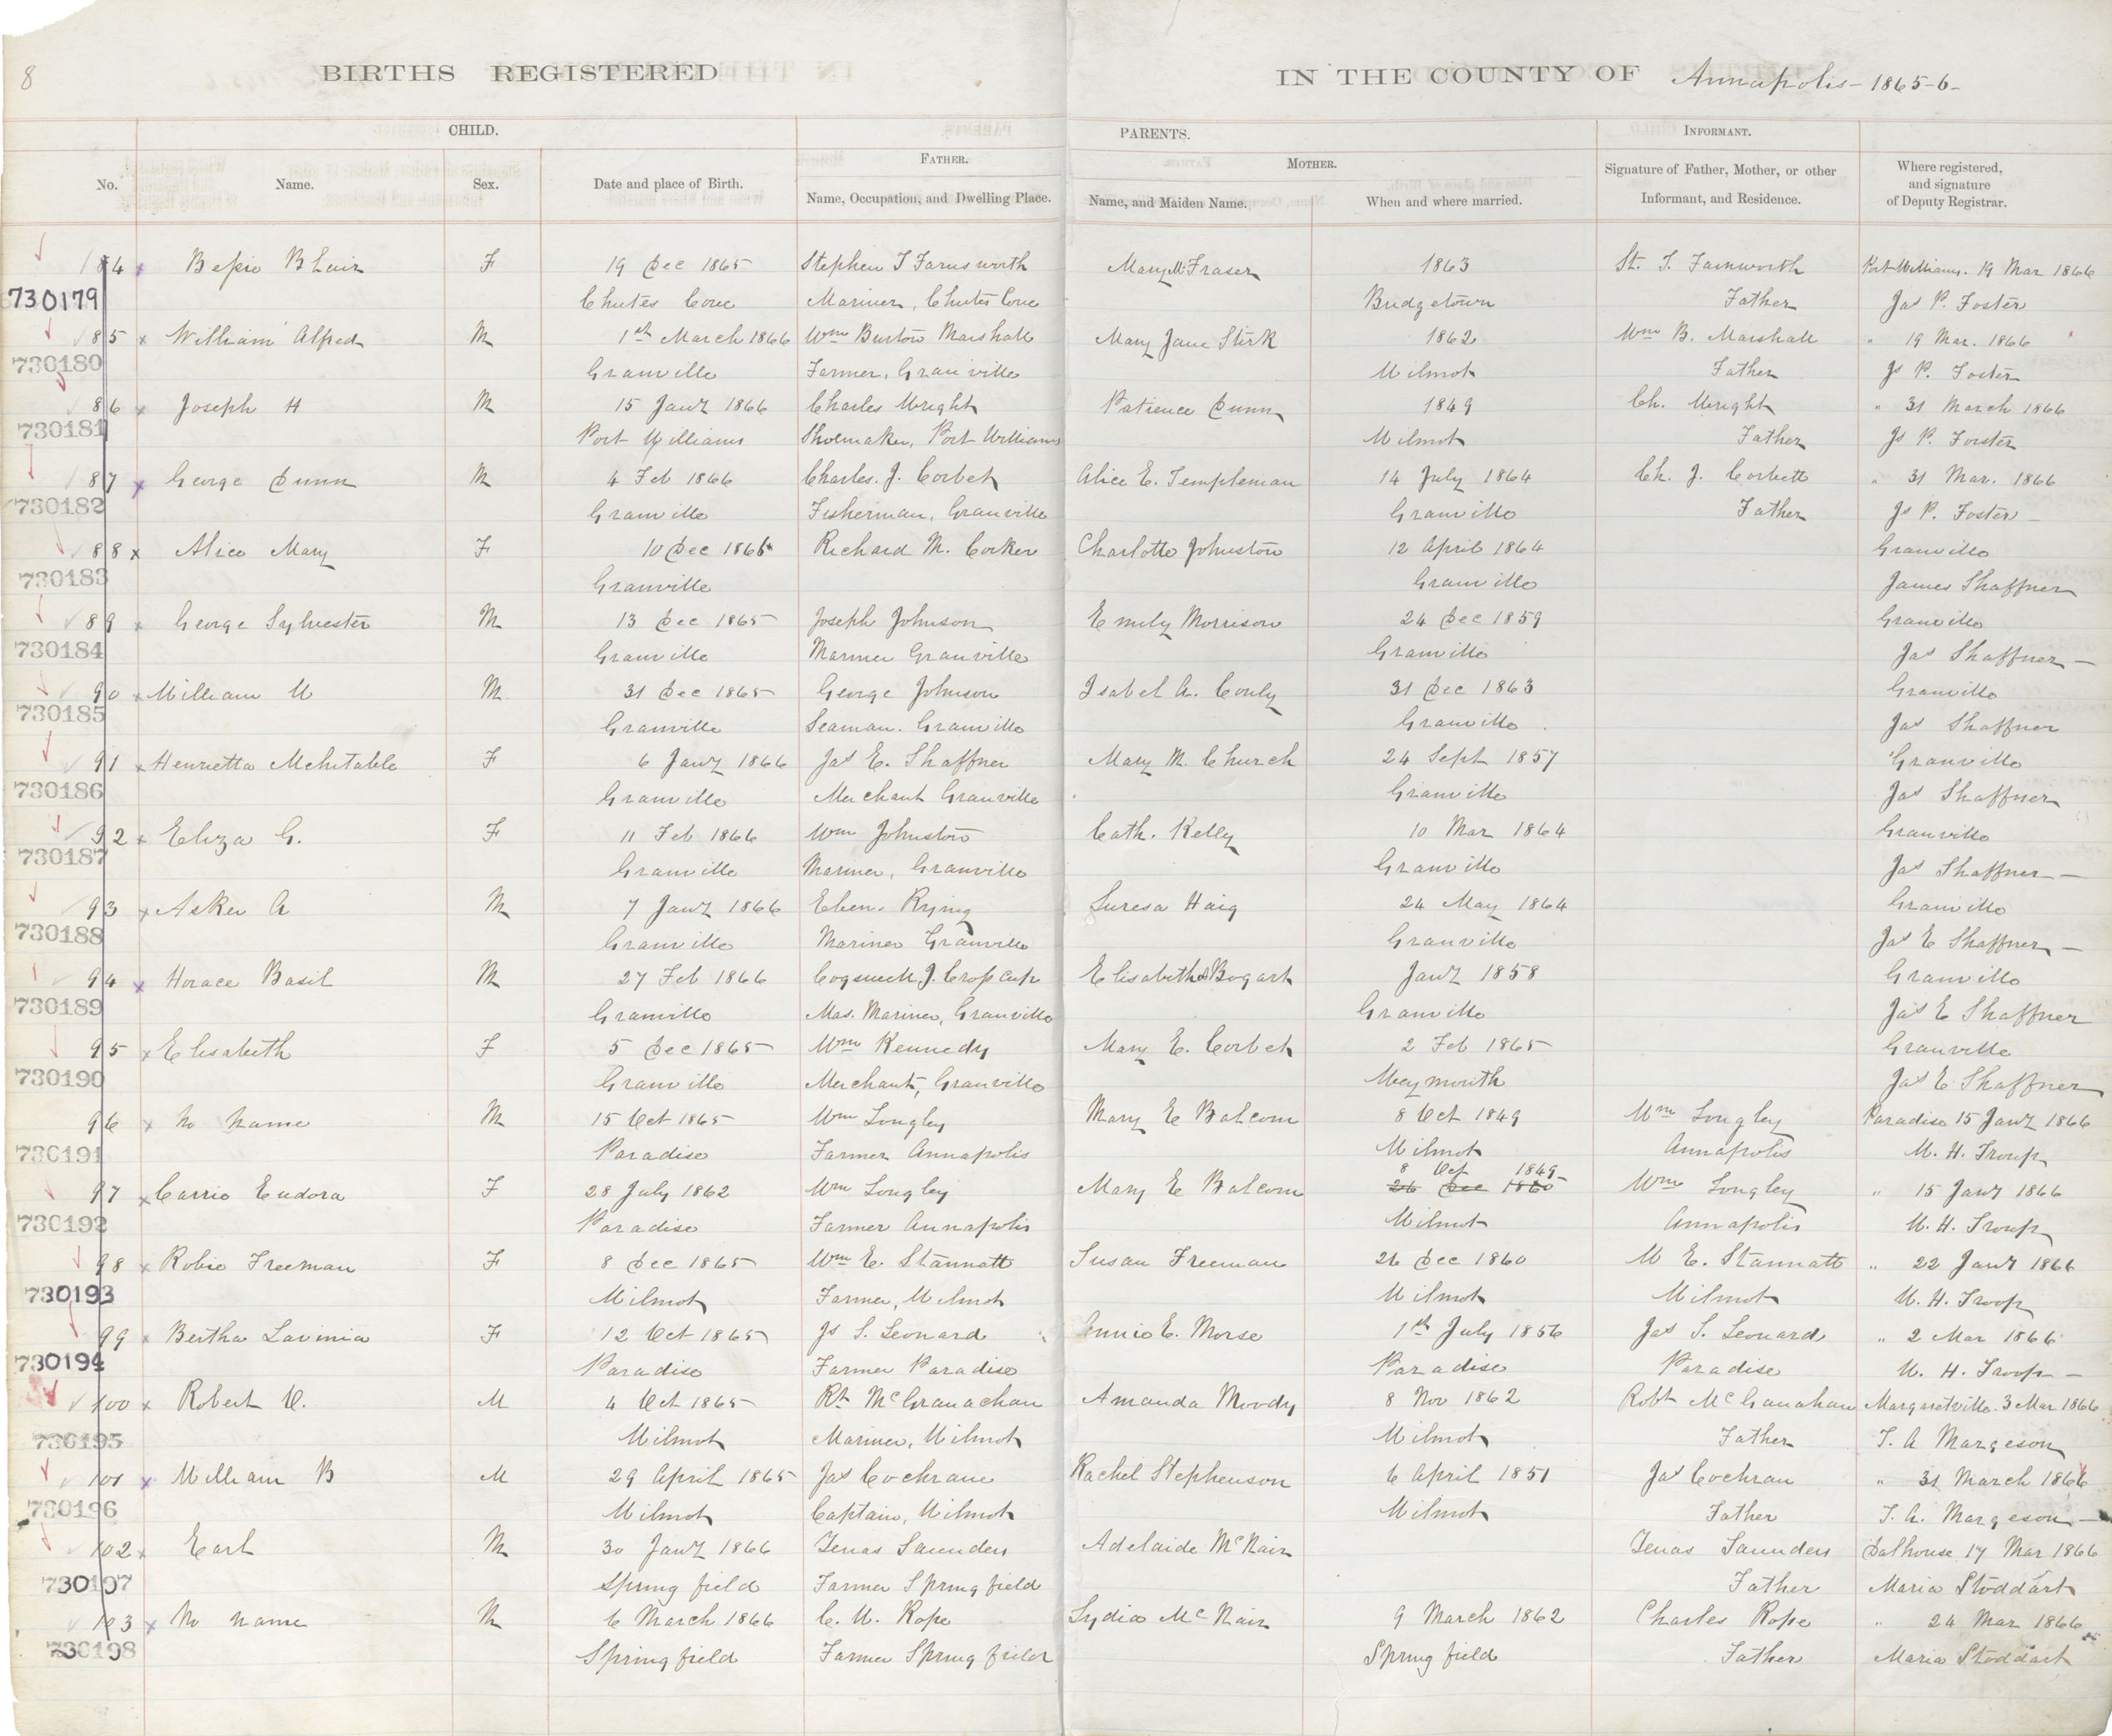 8
BIRTHS REGISTERED IN THE COUNTY OF Annapolis - 1865-6-
CHILD. PARENTS. INFORMANT.
FATHER. MOTHER.
No. Name. Sex. Date and place of Birth. Name, Occupation, and Dwelling Place. Name, and Maiden Name. When and where married. Signature of Father, Mother, or other Informant, and Residence. Where registered, and signature of Deputy Registrar.
84 x Bessie Blair F 19 Dec 1865 Stephen T Farnsworth Mary M Fraser 1863 St. T. Farnworth Port Williams. 19 Mar 1866
730179 Chutes Cove Mariner, Chutes Cove Bridgetown Father Jas P. Foster
85 x William Alfred M 1st March 1866 Wm Burton Marshall Mary Jane Stirk 1862 Wm B. Marshall " 19 Mar. 1866
730180 Granville Farmer, Granville Wilmot Father Js P. Foster
86 x Joseph H M 15 Jany 1866 Charles Wright Patience Dunn 1849 Ch. Wright " 31 March 1866
730181 Port Williams Shoemaker, Port Williams Wilmot Father Js P. Forster
87 x George Dunn M 4 Feb 1866 Charles. J. Corbet Alice E. Templeman 14 July 1864 Ch. J. Corbett " 31 Mar. 1866
730182 Granville Fisherman, Granville Granville Father Js P. Foster
88 x Alice Mary F 10 Dec 1865 Richard M. Corker Charlotte Johnston 12 April 1864 Granville
730183 Granville Granville James Shaffner
89 x George Sylvester M 13 Dec 1865 Joseph Johnson Emily Morrison 24 Dec 1859 Granville
730184 Granville Mariner Granville Granville Jas Shaffner -
90 x William W M 31 Dec 1865 George Johnson Isabel A. Conly 31 Dec 1863 Granville
730185 Granville Seaman. Granville Granville Jas Shaffner
91 x Henrietta Mehitable F 6 Jany 1866 Jas E. Shaffner Mary M. Church 24 Sept 1857 Granville
730186 Granville Merchant Granville Granville Jas Shaffner
92 x Eliza G. F 11 Feb 1866 Wm Johnston Cath. Kelly 10 Mar 1864 Granville
730187 Granville Mariner, Granville Granville Jas Shaffner -
93 x Asker A M 7 Jany 1866 Eben. Haig 24 May 1864 Granville
730188 Granville Mariner Granville Granville Jas E Shaffner -
94 x Horace Basil M 27 Feb 1866 Cogswell J. Crosscup Elisabeth Bogart Jany 1858 Granville
730189 Granville Mas. Mariner, Granville Granville Jas E Shaffner
95 x Elisabeth F 5 Dec 1865 Wm Kennedy Mary E. Corbet 2 Feb 1865 Granville
730190 Granville Merchant, Granville Weymouth Jas E Shaffner
96 x No Name M 15 Oct 1865 Wm Longley Mary E Balcom 8 Oct 1849 Wm Longley Paradise 15 Jany 1866
730191 Paradise Farmer Annapolis Wilmot Annapolis W. H. Troup
97 x Carrie Eudora F 28 July 1862 Wm Longley Mary E Balcom 8 Oct 1849 26 Dec 1860 Wm Longley " 15 Jany 1866
730192 Paradise Farmer Annapolis Wilmot Annapolis W. H. Troup
98 x Robie Freeman F 8 Dec 1865 Wm E. Stannatt Susan Freeman 26 Dec 1860 W E. Stannatt " 22 Jany 1866
730193 Wilmot Farmer, Wilmot Wilmot Wilmot W. H. Troop
99 x Bertha Lavinia F 12 Oct 1865 Js S. Leonard Annie E. Morse 1st July 1856 Jas S. Leonard " 2 Mar 1866
730194 Paradise Farmer Paradise Paradise Paradise W. H. Troop -
100 x Robert O. M 4 Oct 1865 Rt McGranachan Amanda Moody 8 Nov 1862 Robt McGanahan Margaretville. 3 Mar 1866
730195 Wilmot Mariner, Wilmot Wilmot Father T. A Margeson
101 x William B M 29 April 1865 Jas Cochrane Rachel Stephenson 6 April 1851 Jas Cochran " 31 March 1866
730196 Wilmot Captain, Wilmot Wilmot Father T. A. Margeson -
102 x Earl M 30 Jany 1866 Zenas Saunders Adelaide McNair Zenas Saunders Dalhouse 17 Mar 1866
730197 Springfield Farmer Springfield Father Maria Stoddart
103 x No Name M 6 March 1866 C. W. Rope Lydia McNair 9 March 1862 Charles Rope " 24 Mar 1866
730198 Springfield Farmer Springfield Springfield Father Maria Stoddart